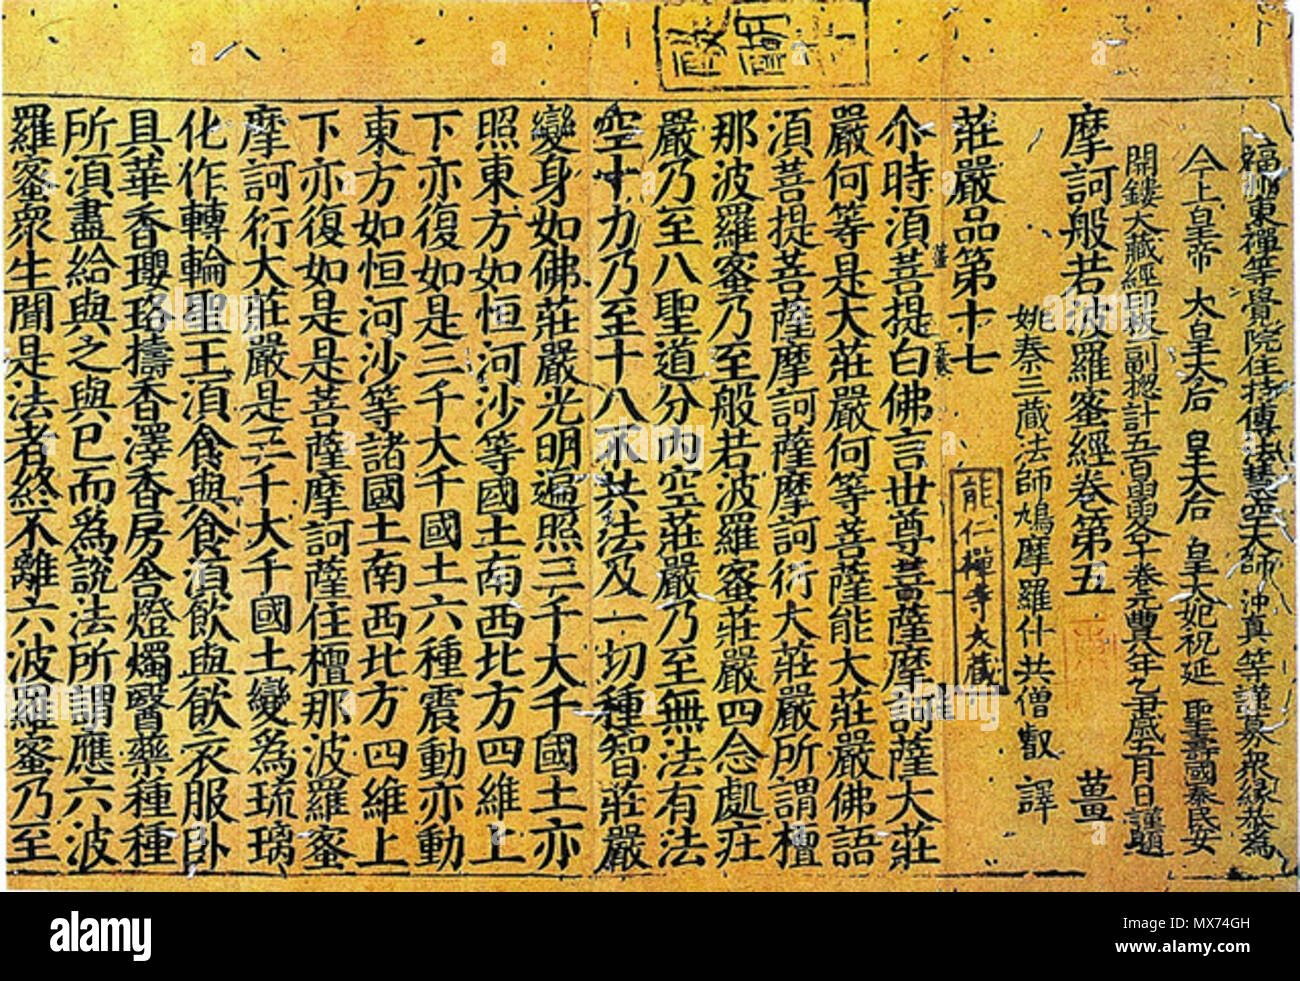 福州東禪等覺院住持傳法慧空大師沖真等謹募衆縁恭爲
今上皇帝 太皇太后 皇太后 皇太妃祝延 聖壽國泰民安
開鏤大藏經印板一副揔計五百函仍勸一卷元豐八年乙丑歲五月日謹題
摩訶般若波羅蜜經卷第五 薑
姚秦三藏法師鳩摩羅什共僧叡 譯
莊嚴品第十七
能仁禪寺大藏
尒時湏菩提白佛言世尊菩薩摩訶薩大莊
嚴何等是大莊嚴何等菩薩能大莊嚴佛語
湏菩提菩薩摩訶薩摩訶衍大莊嚴所謂檀
那波羅蜜乃至般若波羅蜜莊嚴四念處莊
嚴乃至八聖道分內空莊嚴乃至無法有法
空十力乃至十八不共法及一切種智莊嚴
變身如佛莊嚴光明遍照三千大千國土亦
照東方如恒河沙等國土南西北方四維上
下亦復如是三千大千國土六種震動亦動
東方如恒河沙等諸國土南西北方四維上
下亦復如是是菩薩摩訶薩住檀那波羅蜜
摩訶衍大莊嚴是三千大千國土變爲琉璃
化作轉輪聖王湏食與食湏飲與飲衣服卧
具華香瓔珞擣香澤香房舍燈燭醫藥種種
所湏盡給與之與已而爲說法所謂應六波
羅蜜衆生聞是法者終不離六波羅蜜乃至
alamy
Image ID: MX74GH
www.alamy.com